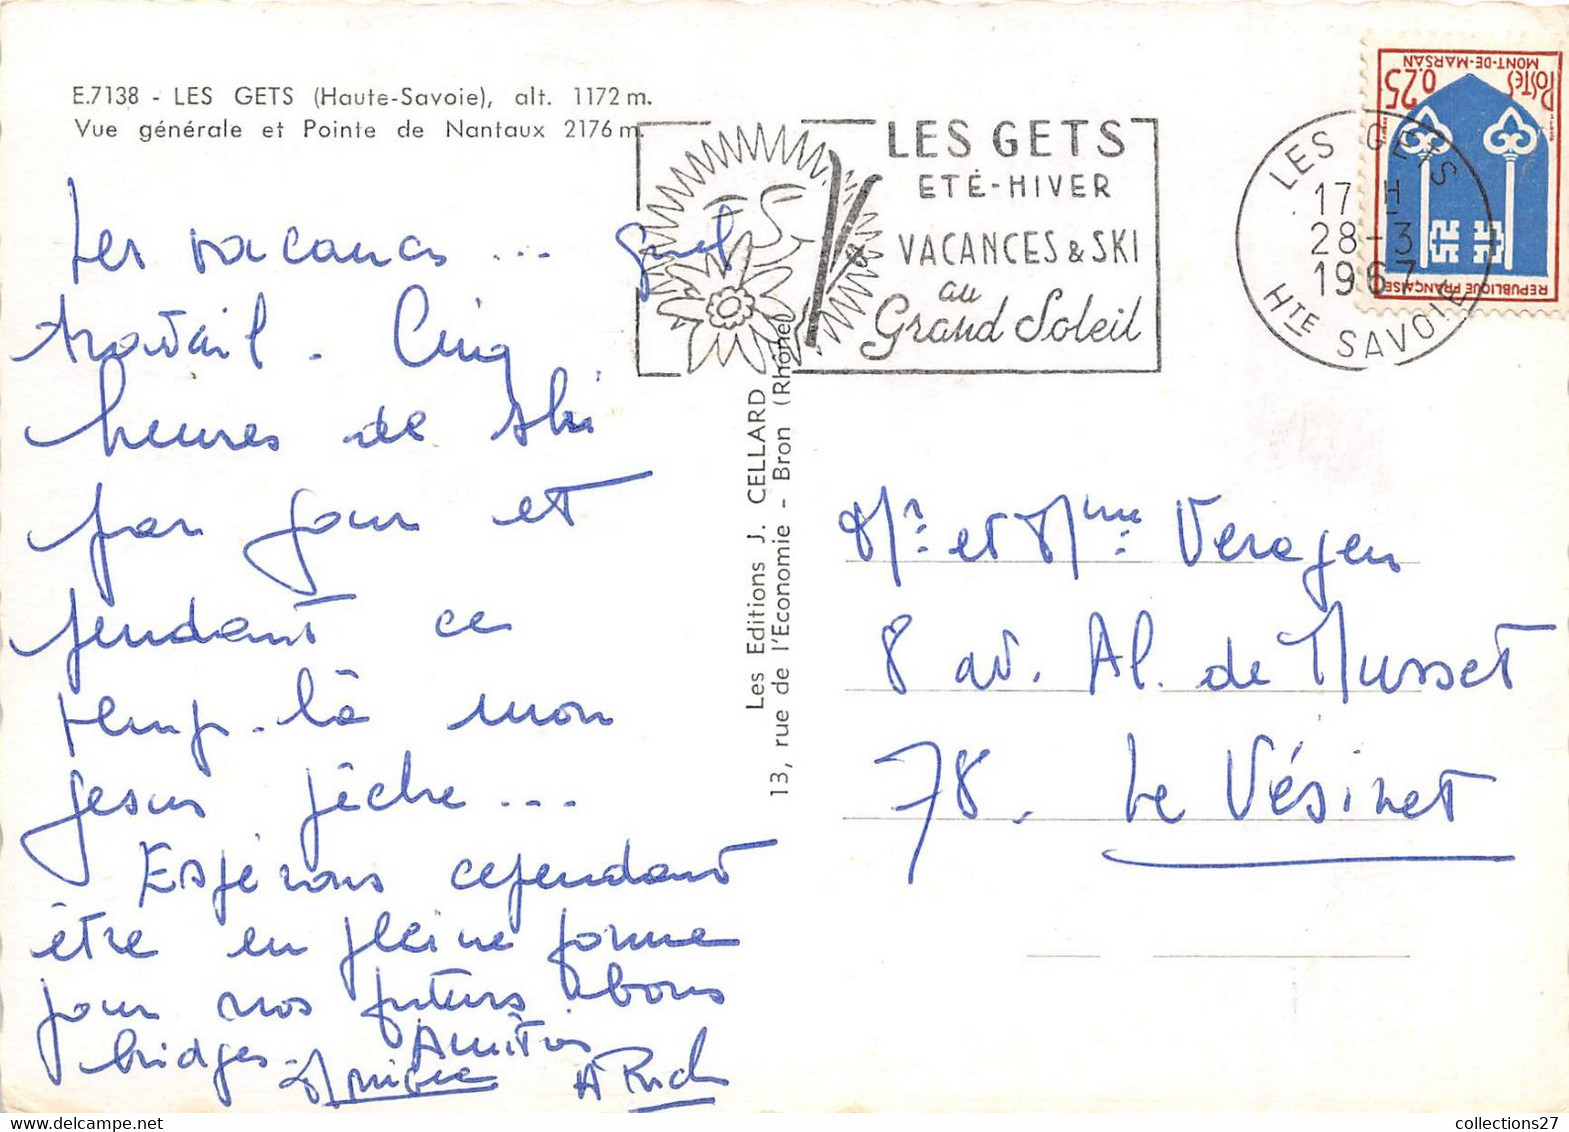 E.7138 - LES GETS (Haute-Savoie), alt. 1172 m.
Vue générale et Pointe de Nantaux 2176 m.
LES GETS
ETÉ-HIVER
VACANCES & SKI
au
Grand Soleil
LES GETS
17 H
28-3
1967
HTE SAVOIE
POSTES 0.25
MONT-DE-MARSAN
REPUBLIQUE FRANÇAISE
Les vacances ... quel
travail. Cinq
heures de ski
par jour et
pendant ce
temp-là mon
sèche ...
Espérons cependant
être en pleine forme
pour nos futurs bons
bridges. Amitiés
Les Editions J. CELLARD
13, rue de l'Economie - Bron (Rhône)
Mr. et Mme Veragen
8 av. Al. de Musset
78. Le Vésinet
collections27